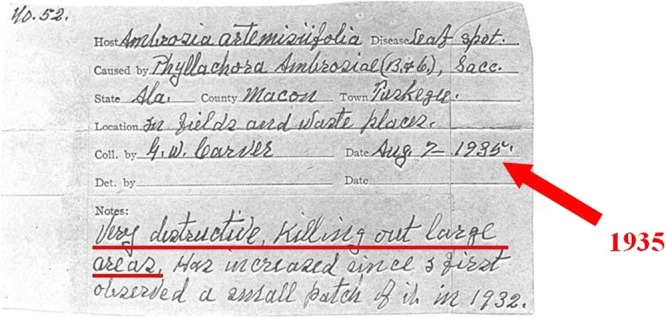 No. 52.
Host Ambrosia artemisiifolia Disease Leaf spot.
Caused by Phyllachora Ambrosiae (B.&C.), Sacc.
State Ala. County Macon Town Tuskegee.
Location In fields and waste places.
Coll. by G. W. Carver Date Aug 7 - 1935.
Det. by Date
Notes:
Very destructive, Killing out large
areas. Has increased since I first
observed a small patch of it in 1932.
1935